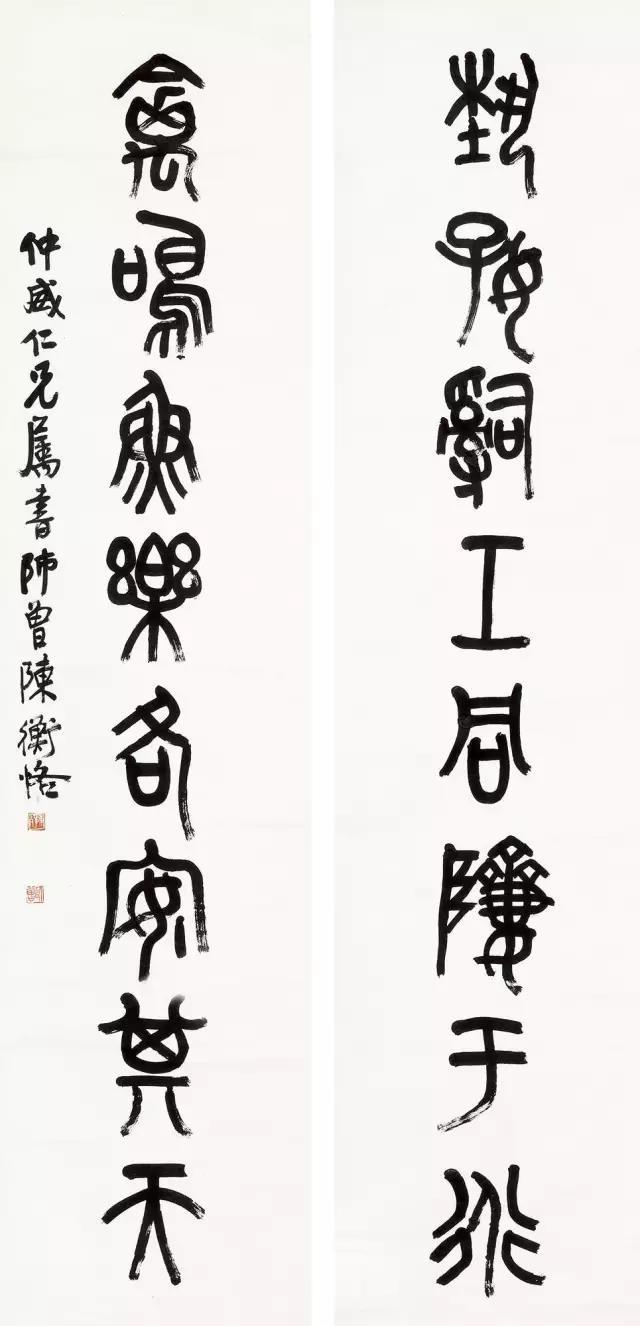 埶好辭工同于
禽鳴魚樂各安其天
仲威仁兄屬書師曾陳衡恪